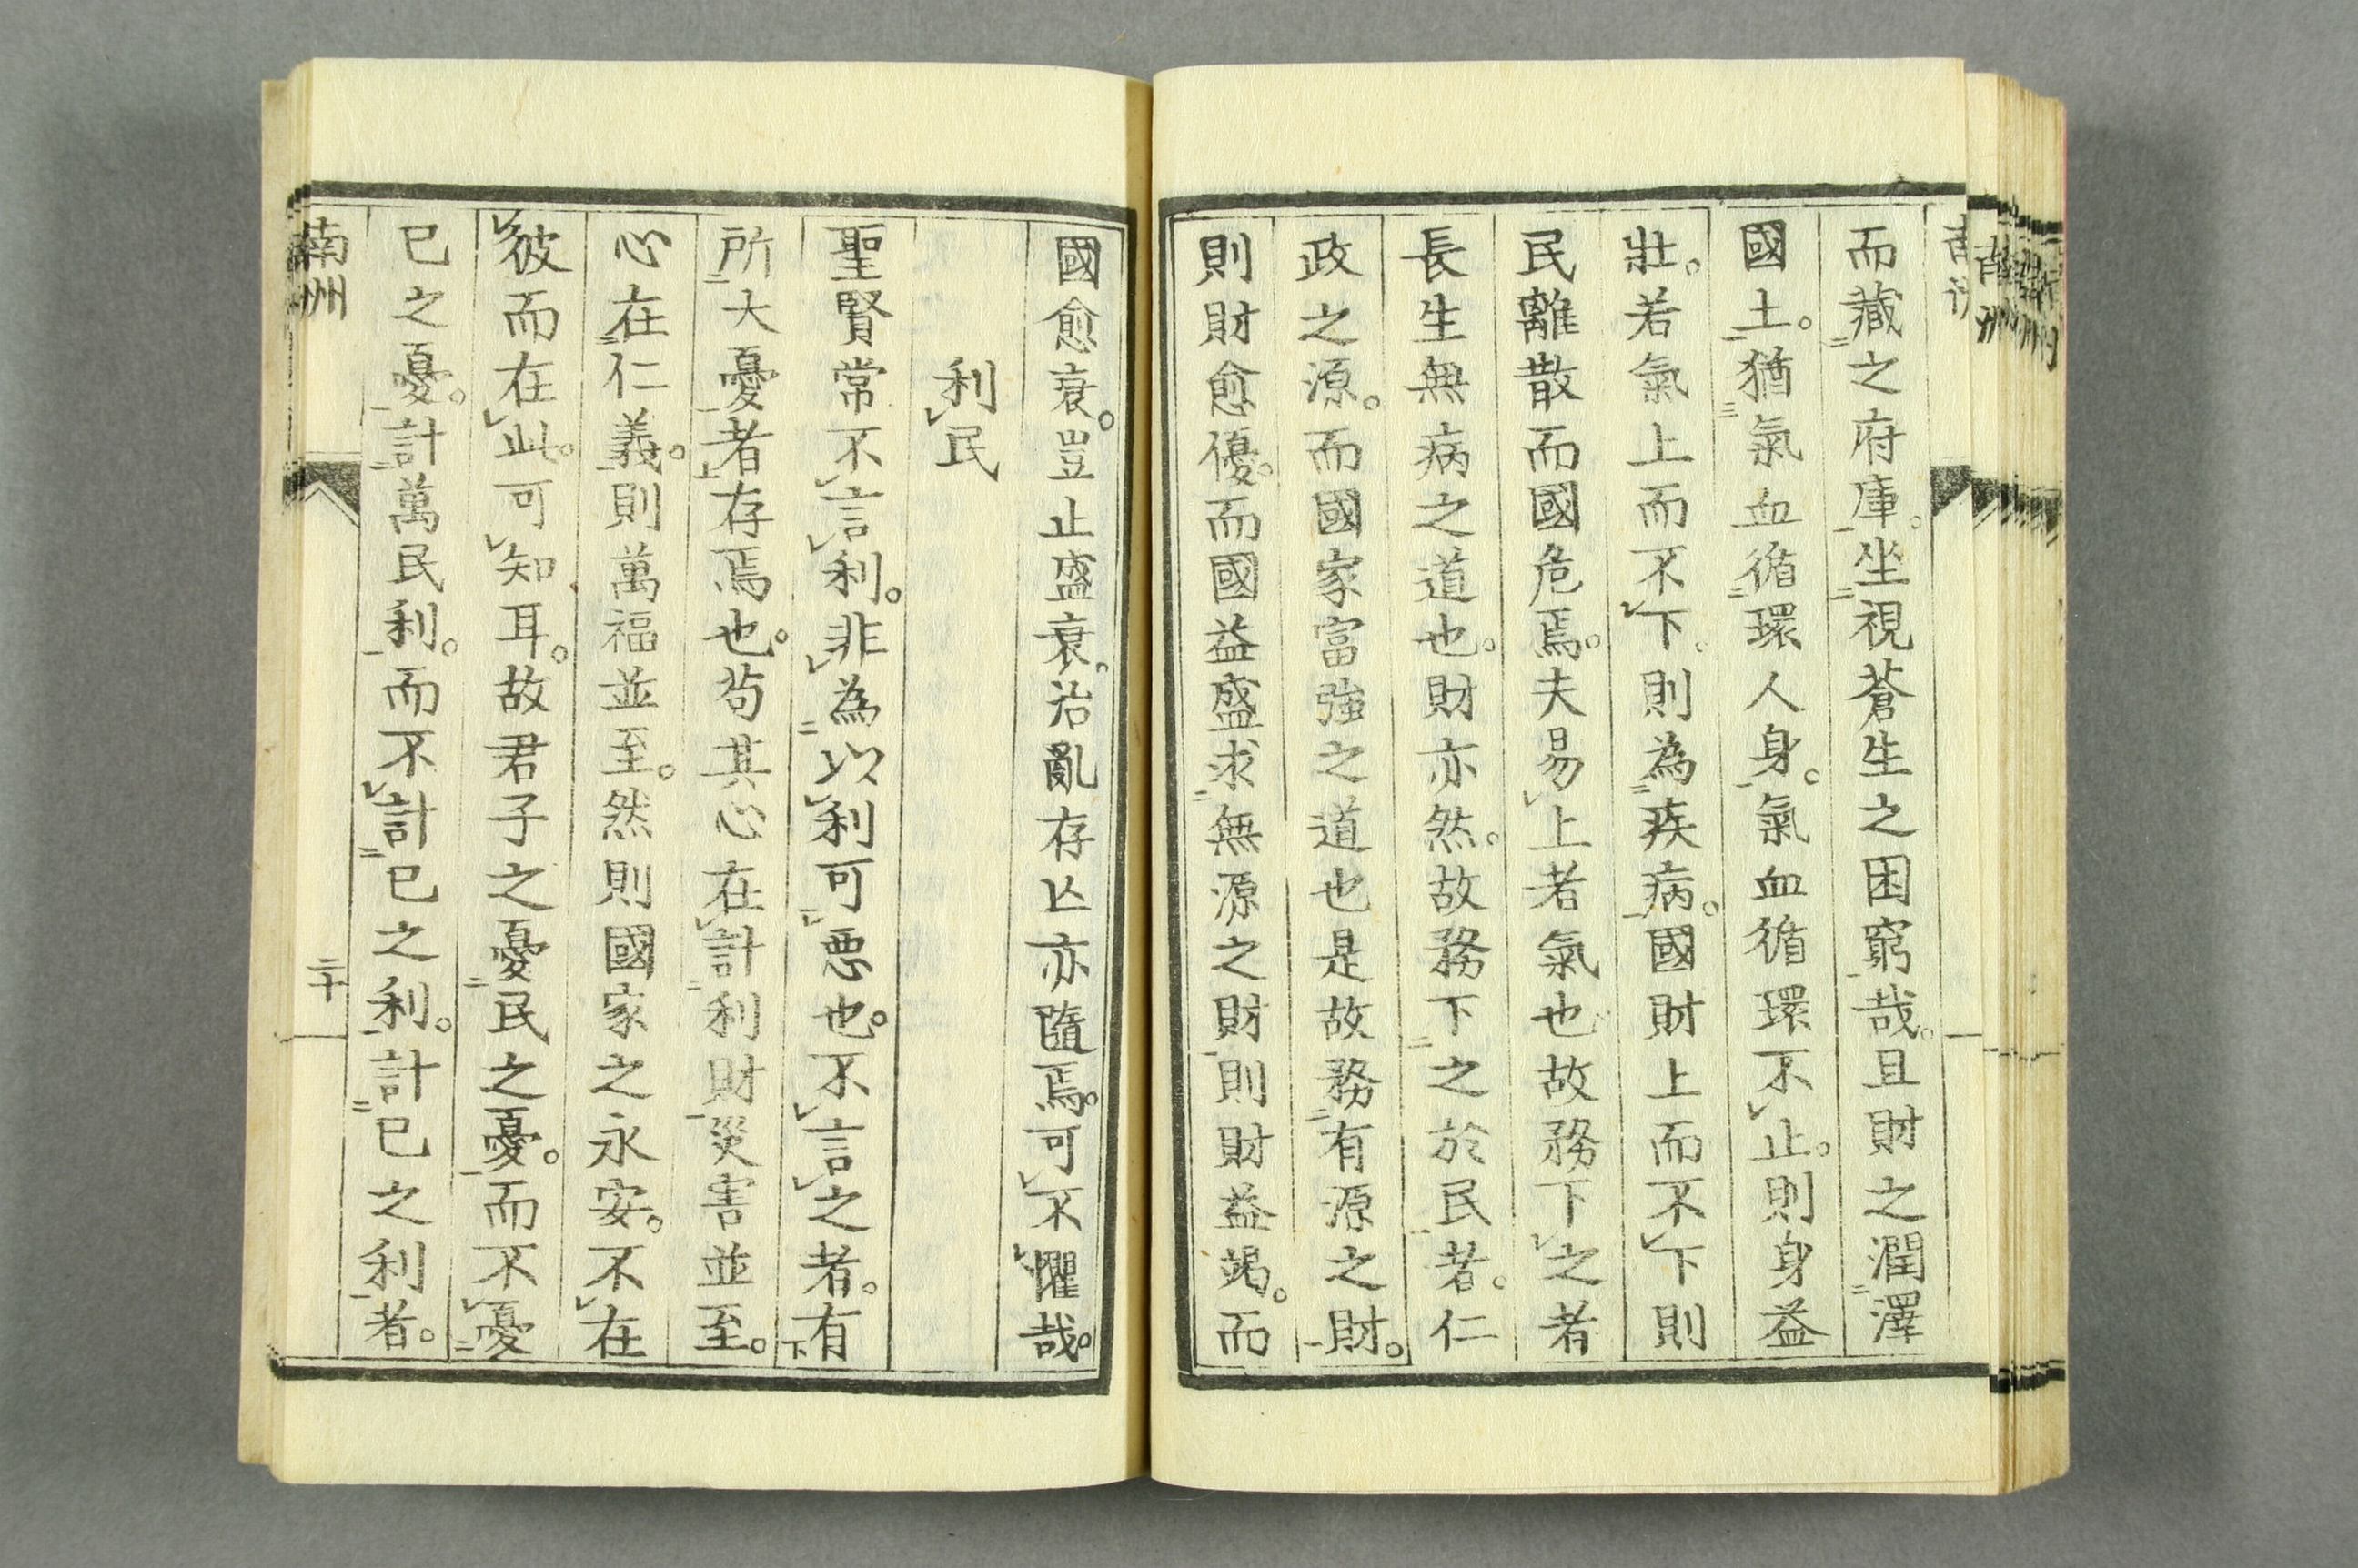 而藏㆓之府庫㆒。坐㆓視蒼生之困窮㆒哉。且財之潤㆓澤
國土㆒。猶㆔氣血循㆓環人身㆒。氣血循環不㆑止。則身益
壯。若氣上而不㆑下。則為㆓疾病㆒。國財上而不㆑下則
民離散而國危焉。夫易㆑上者氣也故務下㆑之者
長生無病之道也。財亦然。故務下㆓之於民㆒者。仁
政之源。而國家富強之道也是故務㆓有源之財㆒。
則財愈優。而國益盛求㆓無源之財㆒則財益竭。而
國愈衰。豈止盛衰。治亂存亾亦隨焉。可㆑不㆑懼哉。
利㆑民
聖賢常不㆑言㆑利。非㆑為㆓以㆑利可㆒㆑惡也。不㆑言㆑之者。有㆘
所㆓大憂㆒者㆖存焉也。苟其心在㆑計㆓利財㆒災害並至。
心在㆓仁義㆒。則萬福並至。然則國家之永安。不㆑在
㆑彼而在㆑此。可㆑知耳。故君子之憂㆓民之憂㆒。而不㆑憂㆓
已之憂㆒。計㆓萬民利㆒。而不㆑計㆓已之利㆒。計㆓已之利㆒者。
南洲
二十